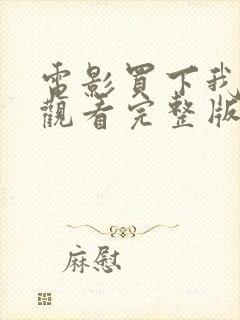 電影買下我
觀看完整版
麻慰